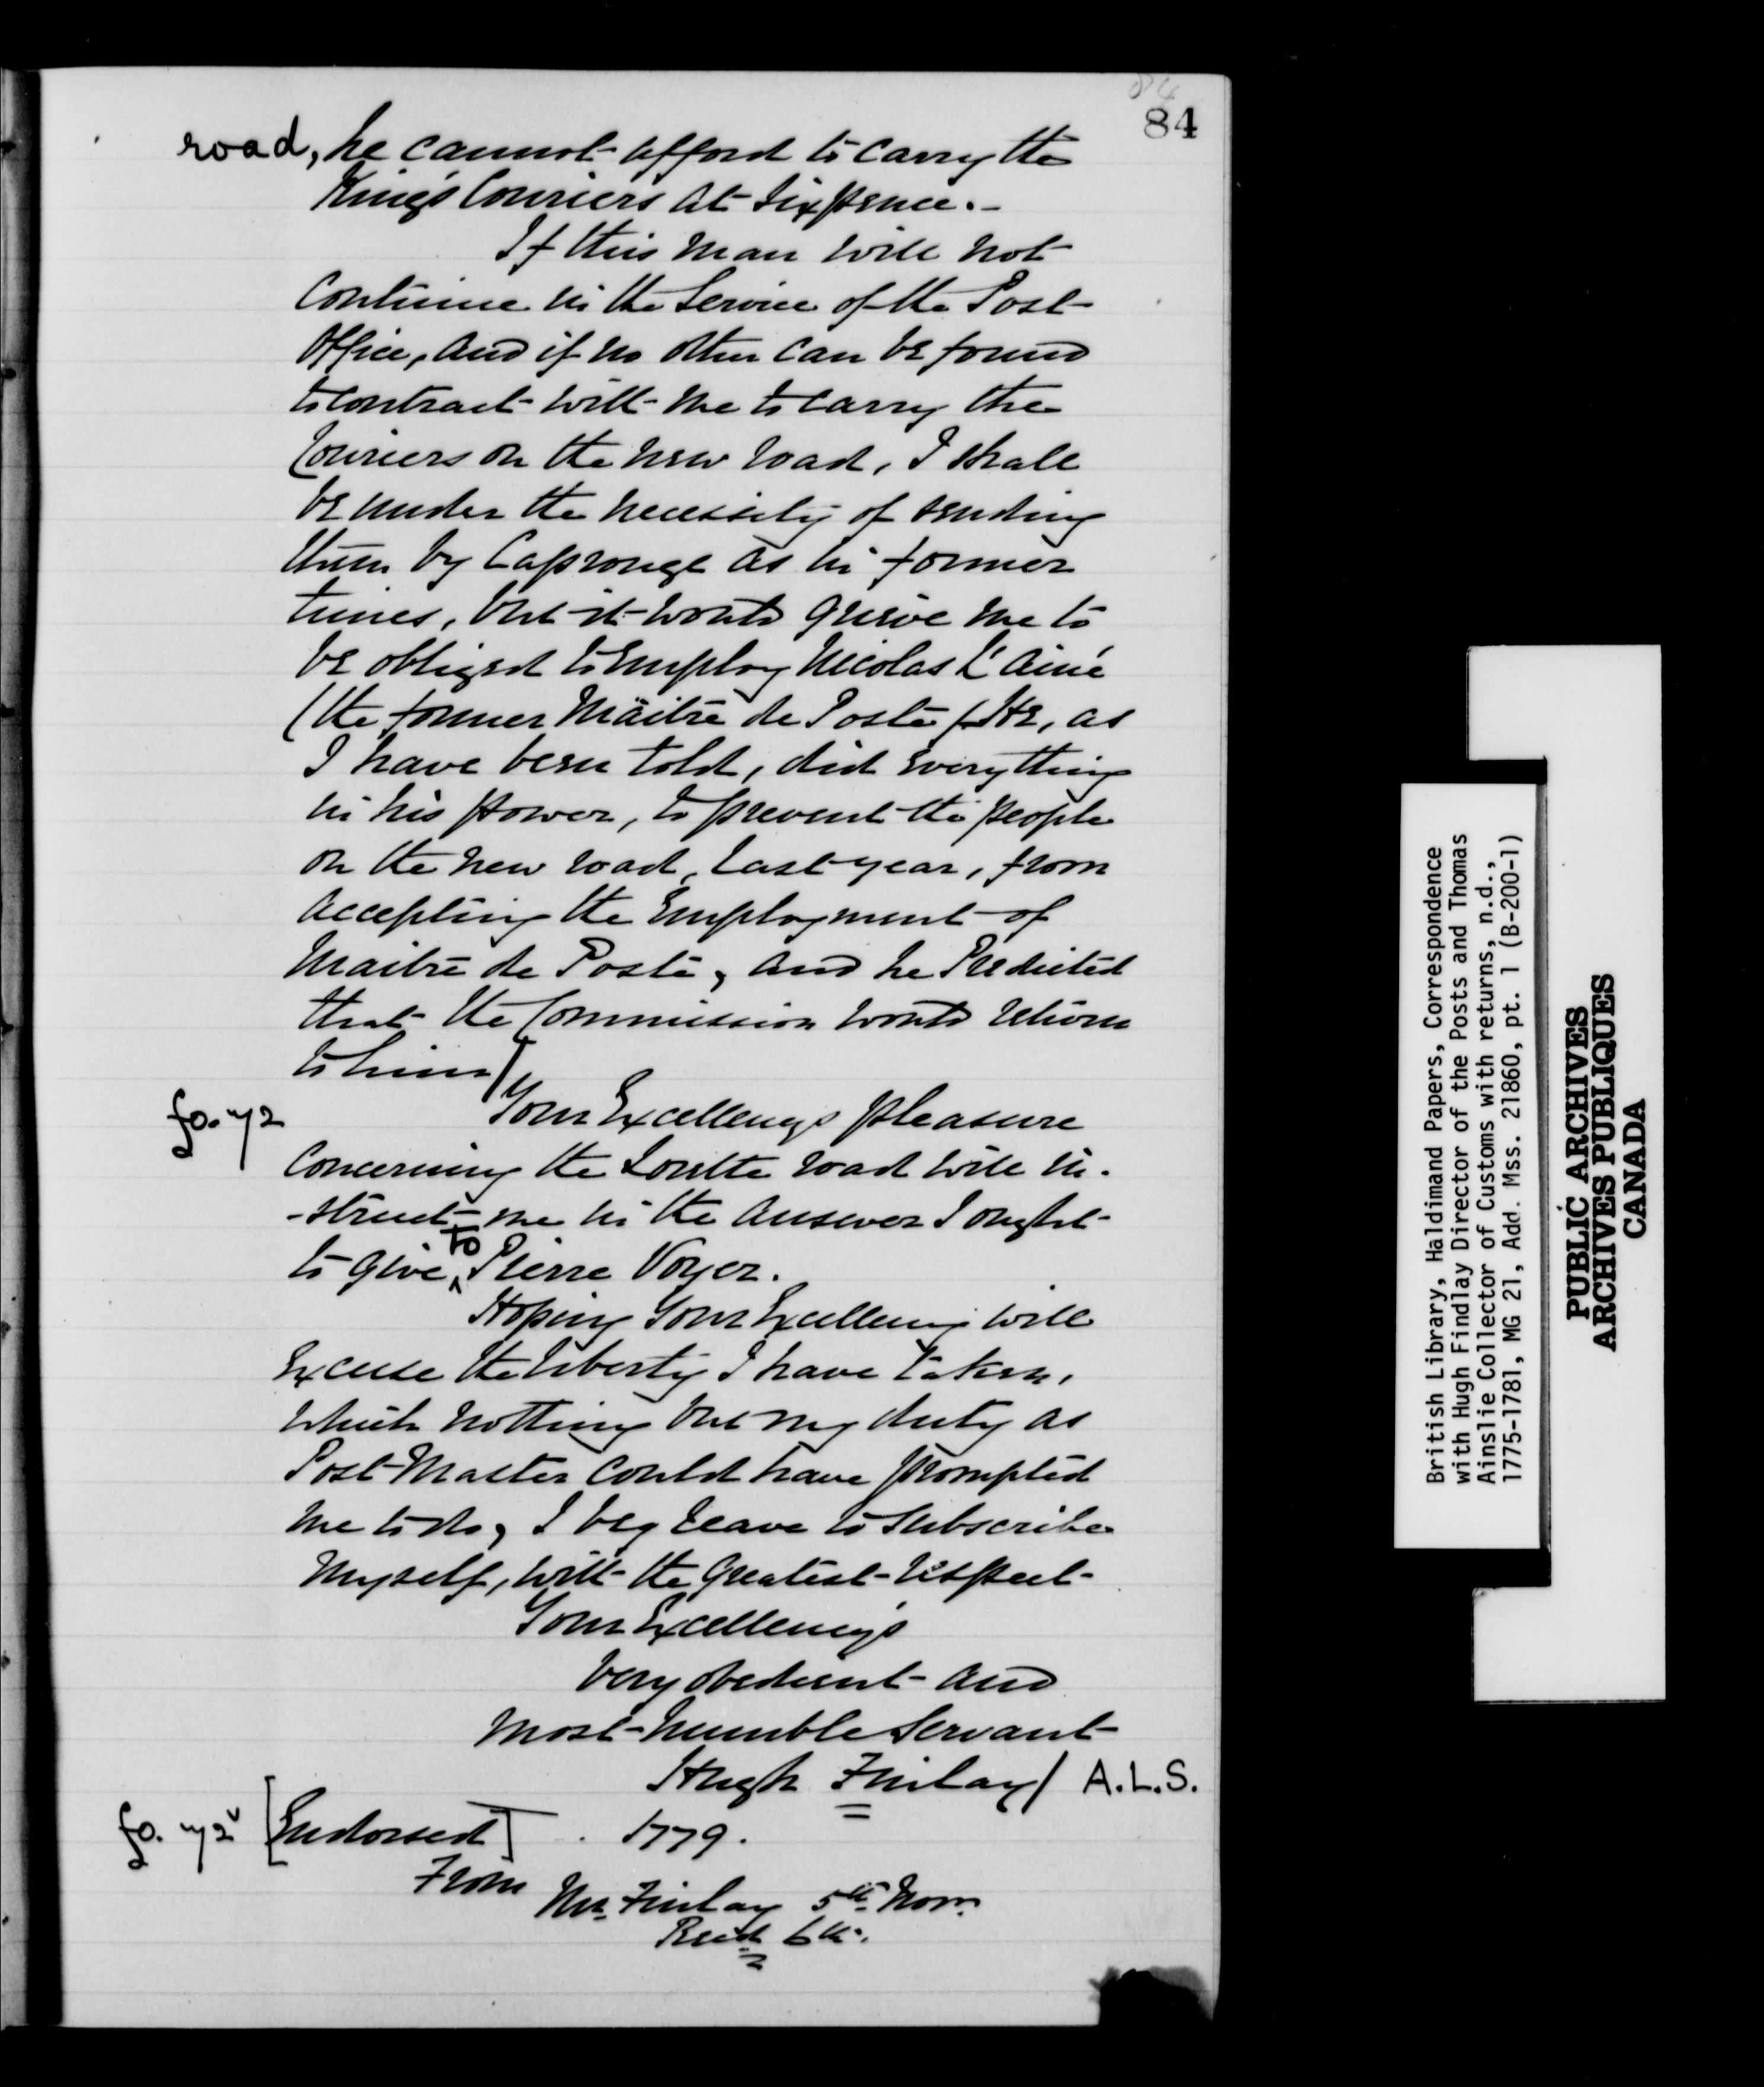 84
road, he cannot afford to carry the
King's Couriers at Sixpence. -
If this man will not
Continue in the Service of the Post
Office, and if no other can be found
to contract with me to carry the
Couriers on the new road, I shall
be under the necessity of sending
them by Caprouge as in former
times, but it would grieve me to
be obliged to employ Nicolas L'ainé
(the former Maitre de Poste / He, as
I have been told, did everything
in his power, to prevent the people
on the new road, last year, from
accepting the Employment of
Maitre de Poste, and he Predicted
that the Commission would return
to him)
fo. 72
Your Excellency's pleasure
Concerning the road will in-
-struct me in the answer I ought
to give to Pierre Voyer.
Hoping Your Excellency will
Excuse the liberty I have taken,
which nothing but my duty as
Post-Master could have prompted
me to do, I beg leave to subscribe
Myself, with the greatest respect
Your Excellency's
Very obedient and
Most humble Servant
Hugh Finlay / A.L.S.
fo. 72v [Endorsed] . 1779.
From
Mr. Finlay 5th Novr.
Recd 6th.
British Library, Haldimand Papers, Correspondence
with Hugh Findlay Director of the Posts and Thomas
Ainslie Collector of Customs with returns, n.d.,
1775-1781, MG 21, Add. Mss. 21860, pt. 1 (B-200-1)
PUBLIC ARCHIVES
ARCHIVES PUBLIQUES
CANADA